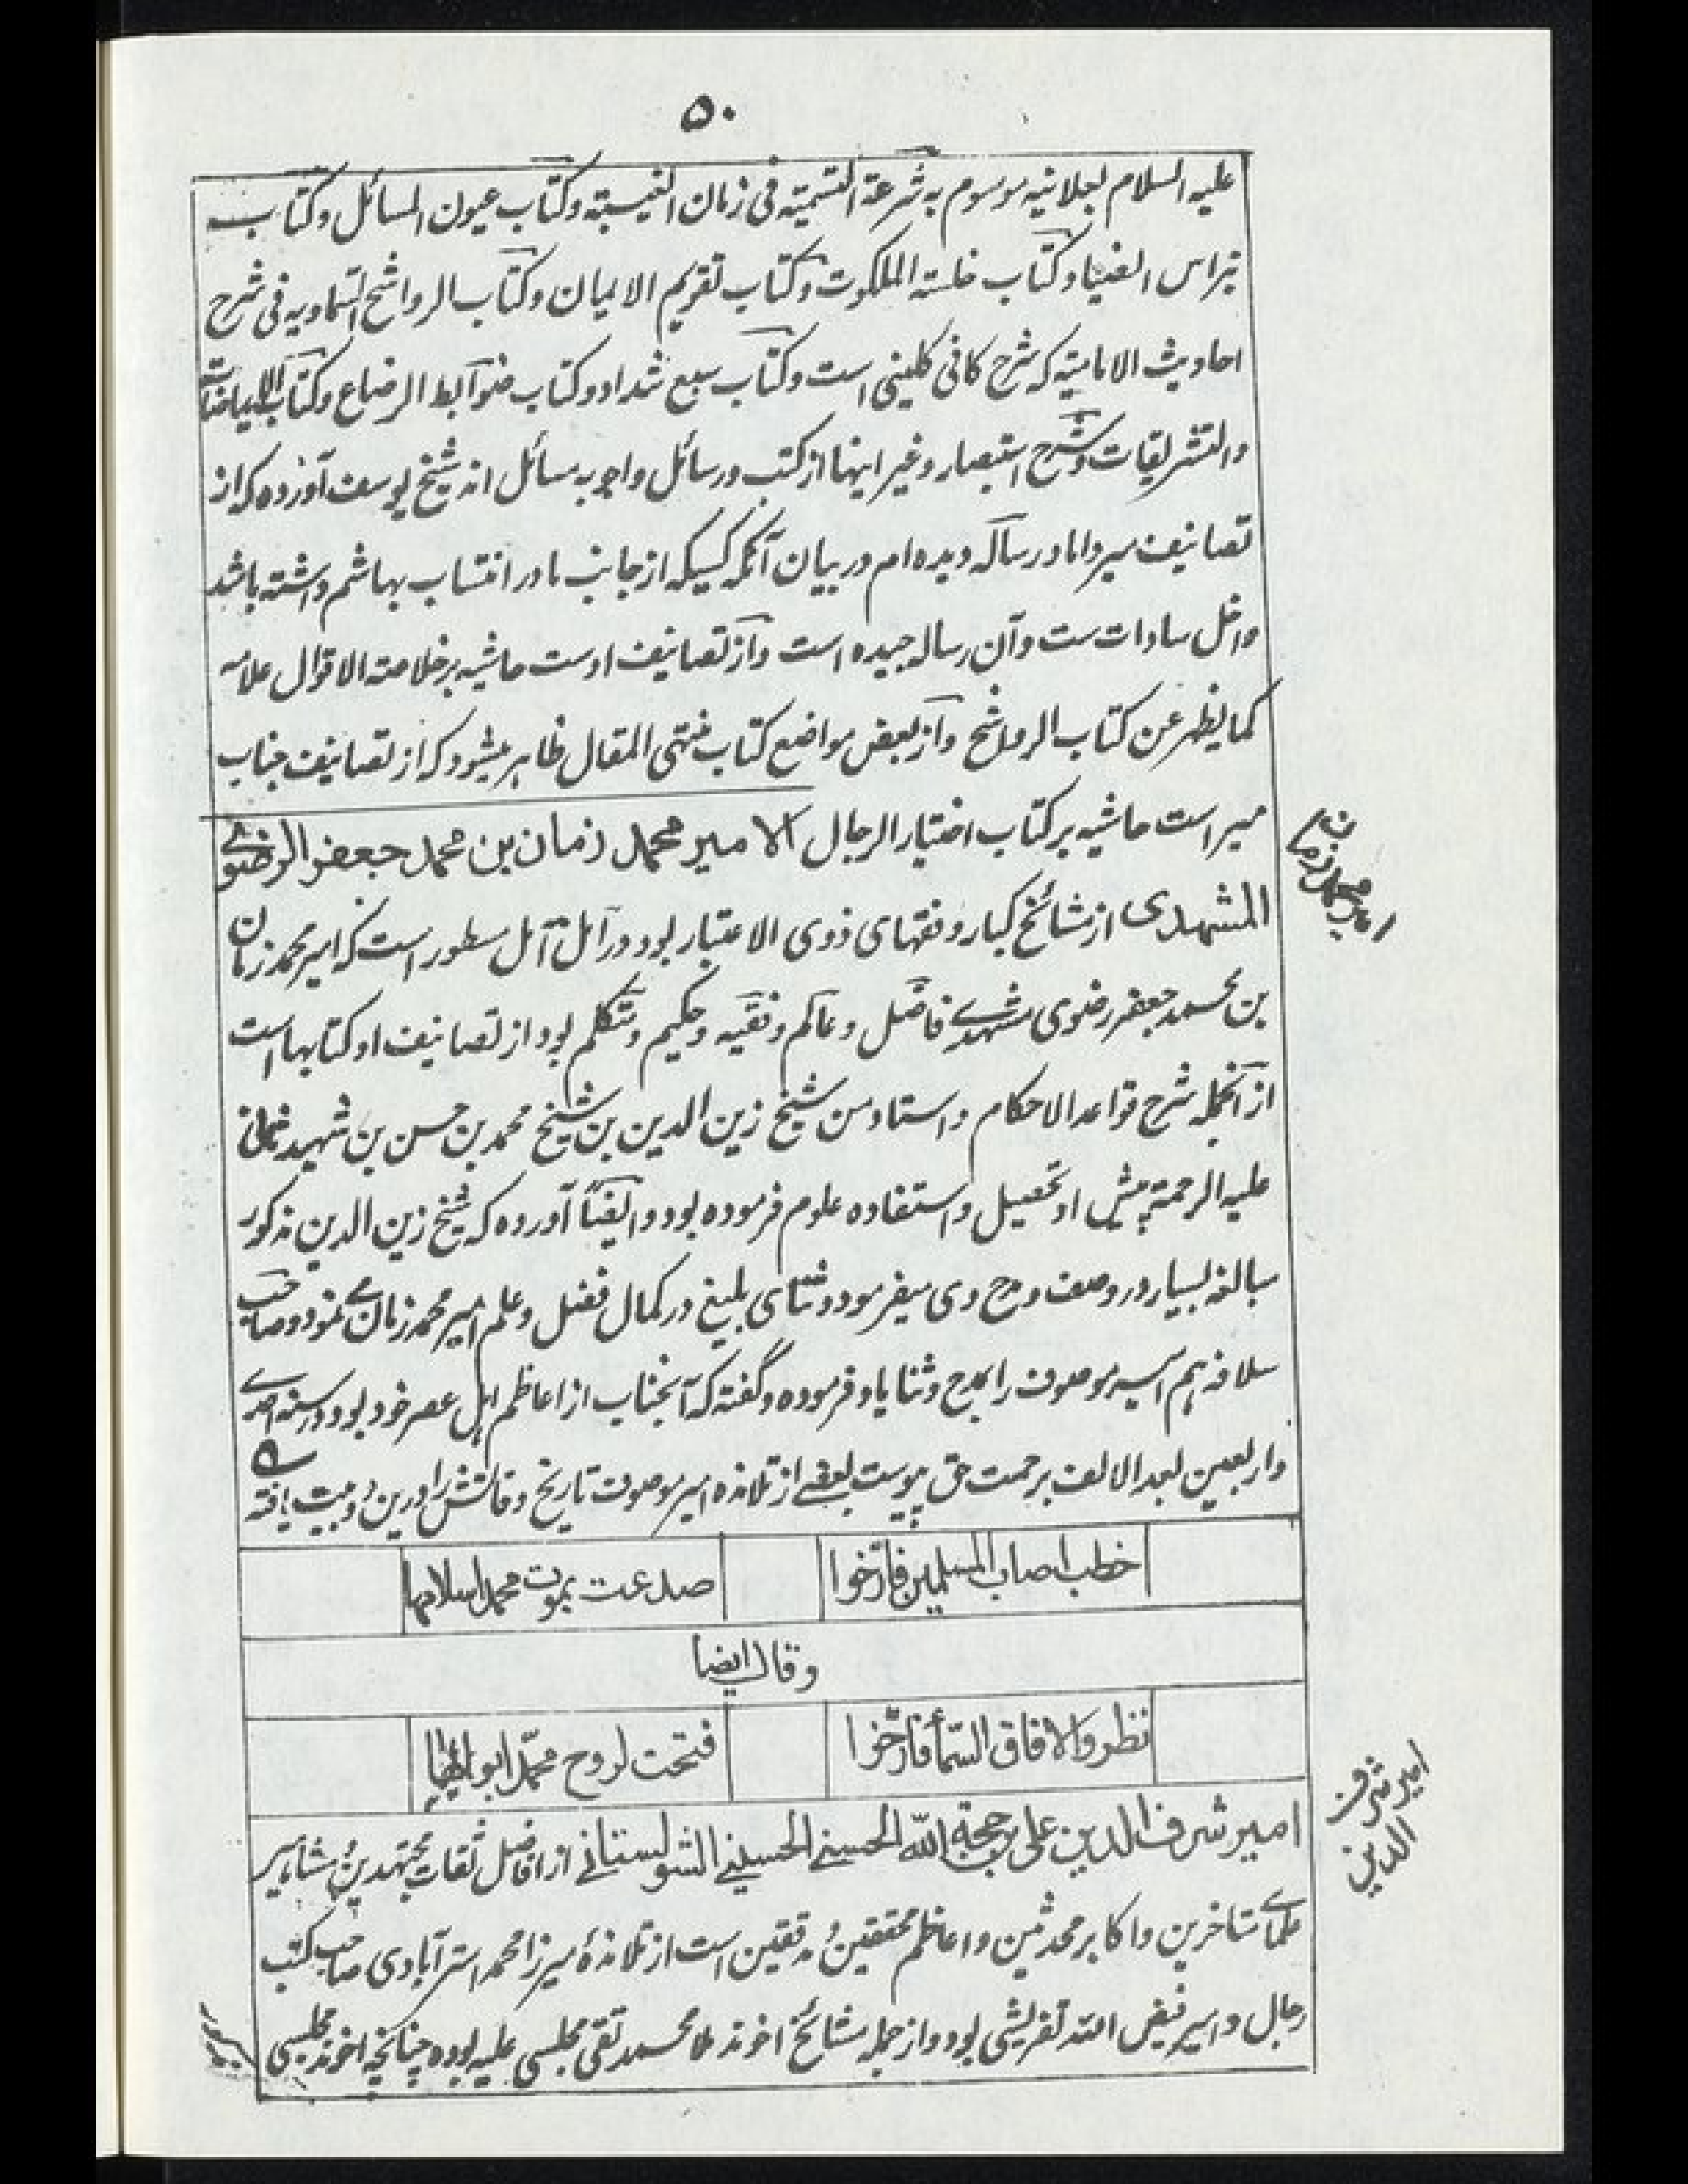 ۵۰
علیه السلام بعلانیه موسوم به شرعة التسمیة فی زمان الغیبة وکتاب عیون المسائل وکتاب
نبراس الضیا وکتاب خلسة الملکوت وکتاب تقویم الایمان وکتاب الرواشح السماویه فی شرح
احادیث الامامیة که شرح کافی کلینی است وکتاب سبع شداد وکتاب ضوابط الرضاع وکتاب الایماضات
والتشریقات وشرح استبصار وغیر اینها از کتب ورسائل واجوبه مسائل اند شیخ یوسف آورده که از
تصانیف میر داماد رساله دیده ام در بیان آنکه کسیکه از جانب مادر انتساب بهاشم داشته باشد
داخل سادات ست وآن رساله جیده است واز تصانیف اوست حاشیه بر خلاصة الاقوال علامه
کما یظهر عن کتاب الرواشح واز بعض مواضع کتاب منتهی المقال ظاهر میشود که از تصانیف جناب
میر است حاشیه بر کتاب اختیار الرجال الامیر محمد زمان بن محمد جعفر الرضوی
امیر محمد زمان
المشهدی از مشائخ کبار وفقهای ذوی الاعتبار بود در امل آمل مسطور است که امیر محمد زمان
بن محمد جعفر رضوی مشهدی فاضل وعالم وفقیه وحکیم ومتکلم بود از تصانیف او کتابها است
از آنجمله شرح قواعد الاحکام واستاد من شیخ زین الدین بن شیخ محمد بن حسن بن شهید ثانی
علیه الرحمة پیش او تحصیل واستفاده علوم فرموده بود وایضاً آورده که شیخ زین الدین مذکور
مبالغه بسیار در وصف ومدح وی میفرمود وثنای بلیغ در کمال فضل وعلم امیر محمد زمان می نمود وصاحب
سلافه هم امیر موصوف را بمدح وثنا یاد فرموده وگفته که آنجناب از اعاظم اهل عصر خود بود ودر سنه احدی
واربعین بعد الالف برحمت حق پیوست بعضی از تلامذه امیر موصوف تاریخ وفاتش را درین دو بیت یافته
خطب اصاب المسلمین فارّخوا صدعت بموت محمد اسلامها
وقال ایضا
نظروا لافاق السّما فارّخوا فتحت لروح محمّد ابوابها
امیر شرف الدین
امیر شرف الدین علی بن حجة الله الحسنی الحسینی الشولستانی از افاضل ثقات مجتهدین ومشاهیر
علمای متاخرین واکابر محدثین واعاظم محققین ومدققین است از تلامذهٔ میرزا محمد استرآبادی صاحب کتب
رجال وامیر فیض الله تفریشی بود واز جمله مشائخ اخوند ملا محمد تقی مجلسی علیه بوده چنانچه اخوند مجلسی